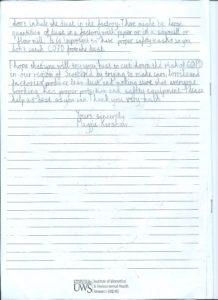 don't inhale the dust in the factory. There might be large
quantities of dust in a factory with paper or in a sawmill or
flour mill. It is important to have proper safety masks so you
don't catch COPD from the dust.
I hope that you will try your best to cut down the risk of COPD
in our region of Scotland by trying to make cars, lorries and
factories produce less dust and making sure that everyone
working has proper protection and safety equipment. Please
help as best as you can. Thank you very much.
Yours sincerely
Maggie
UWS
Institute of Biomedical
& Environmental Health
Research (IBEHR)